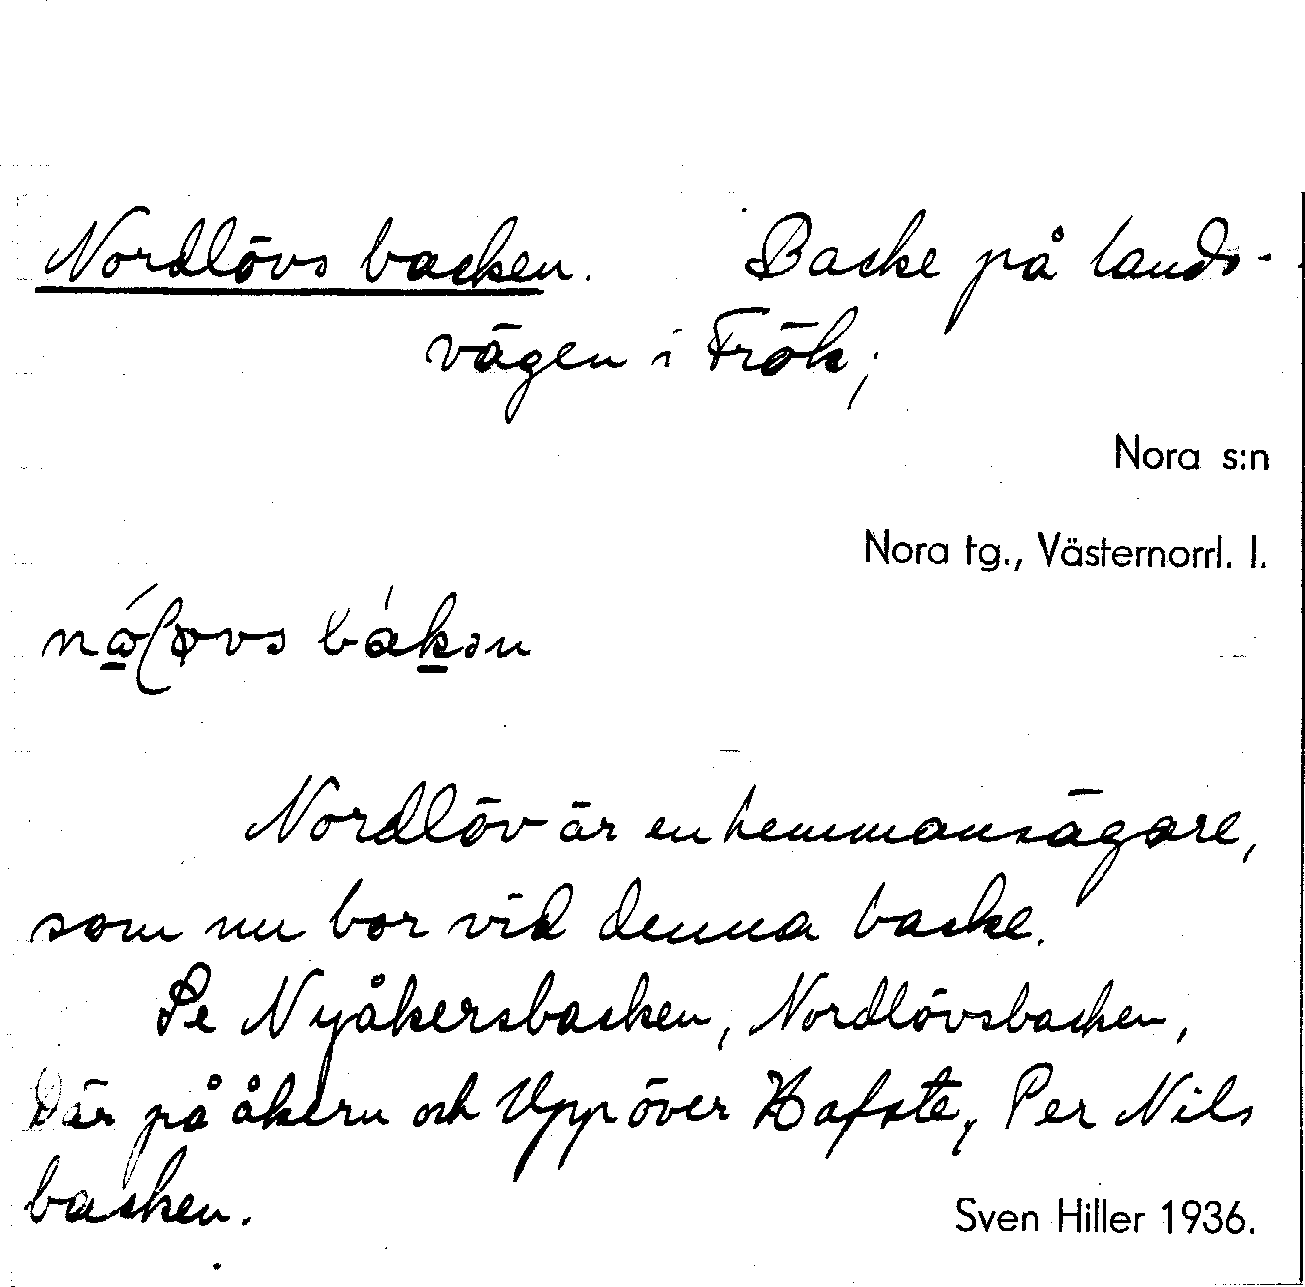 Nordlövs backen. Backe på lands-
vägen i Frök;
Nora s:n
Nora tg., Västernorrl. l.
bákən
Nordlöv är en hemmansägare,
som nu bor vid denna backe.
Se Nyåkersbacken, Nordlövsbacken,
Där på åkern och Uppöver Hafste, Per Nils
backen.
Sven Hiller 1936.